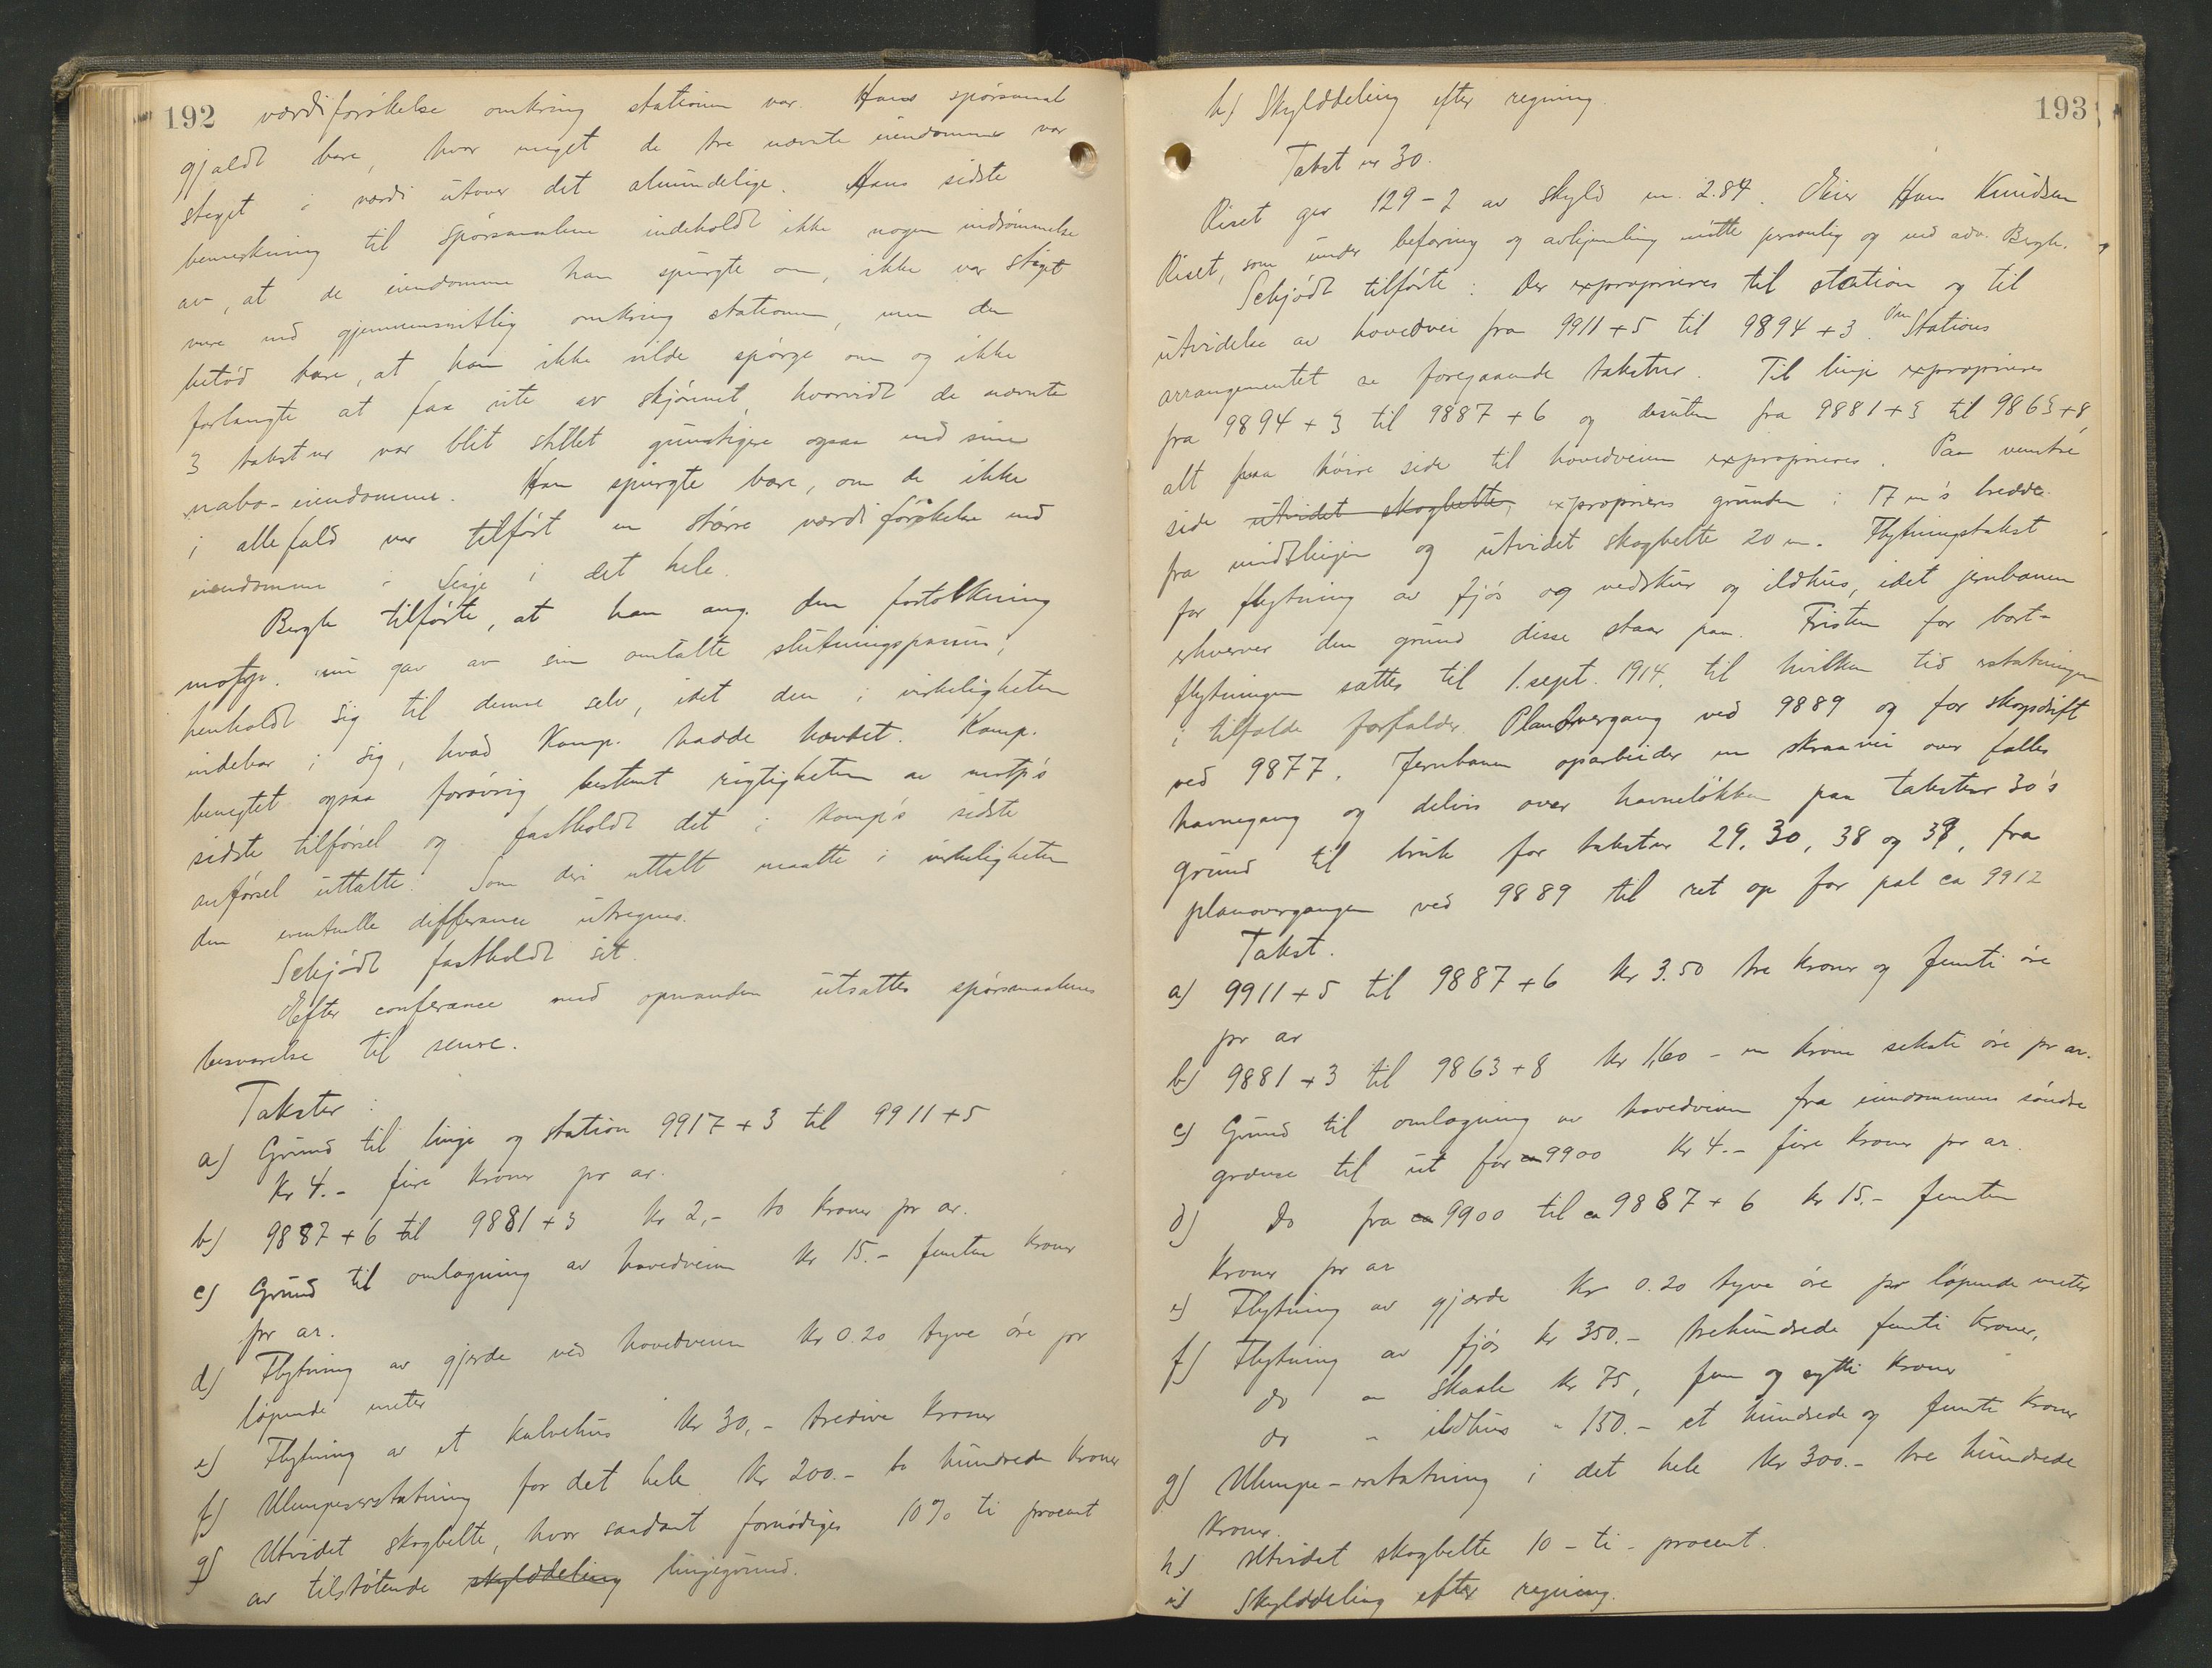 192 værdiforökelse omkring stationen var. Hans spörsmaal
gjaldt bare, hvor meget de tre nævnte eiendommer var
steget i værdi utover det almindelige. Hans sidste
bemerkning til spörsmaalene indeholdt ikke nogen indrömmelse
av, at de eiendomme han spurgte om, ikke var steget
mere end gjennemsnitlig omkring stationen, men den
betöd bare, at han ikke vilde spörge om og ikke
forlangte at faa vite av skjönnet, hvorvidt de nævnte
3 takstnr var blit stillet gunstigere ogsaa end sine
nabo-eiendomme. Han spurgte bare, om de ikke
i allefald var tilfört en större værdiforökelse end
eiendomme i Lesje i det hele.
Bergh tilförte, at han ang. den fortolkning
motp. nu gav av sin omtalte slutningspassus,
henholdt sig til denne selv, idet den i virkeligheten
indebar i sig, hvad Komp. hadde hævdet. Komp.
benegtet ogsaa forövrig bestemt rigtigheten av motp's
sidste tilförsel og fastholdt det i komp's sidste
anförsel uttalte. Som deri uttalt maatte i virkeligheten
den eventuelle differance utregnes.
Schjödt fastholdt sit.
Efter conferance med opmanden utsattes spörsmaalenes
besvarelse til senere.
Takster:
a) Grund til linje og station 9917+3 til 9911+5
Kr 4.- fire kroner pr ar.
b) 9887+6 til 9881+3 kr 2,- to kroner pr ar.
c) Grund til omlægning av hovedveien kr 15.- femten kroner
pr ar.
d) Flytning av gjerde ved hovedveien kr 0.20 tyve öre pr
löpende meter
e) Flytning av et kalvehus kr 30,- tredive kroner
f) Ulempeserstatning for det hele kr 200.- to hundrede kroner
g) Utvidet skogbelte, hvor saadant fornödiges 10% ti procent
av tilstötende skylddeling linjegrund.
193
h) Skylddeling efter regning.
Takst nr 30.
Riset gnr 129-2 av skyld m. 2.84. Eier Hans Knudsen
Riset, som under befaring og avhjemling mötte personlig og ved adv. Bergh.
Schjödt tilförte: Der exproprieres til station og til
utvidelse av hovedvei fra 9911+5 til 9894+3. Om Stations
arrangementet se foregaaende takstnr. Til linje exproprieres
fra 9894+3 til 9887+6 og desuten fra 9881+3 til 9863+8,
alt paa höire side til hovedveien exproprieres. Paa venstre
side utvidet skogbelte, exproprieres grunden i 17 m's bredde
fra midtlinjen og utvidet skogbelte 20 m. Flytningstakst
for flytning av fjös og vedskur og ildhus, idet jernbanen
erhverver den grund disse staar paa. Fristen for bort-
flytningen sættes til 1. sept. 1914, til hvilken tid erstatningen
i tilfælde forfalder. Planovergang ved 9889 og for skogsdrift
ved 9877. Jernbanen oparbeider en skraavei over fælles
havnegang og delvis over havnelökken paa takstnr 30's
grund til bruk for takstnr 29, 30, 38 og 39, fra
planovergangen ved 9889 til ret op for pæl ca 9912
Takst.
a) 9911+5 til 9887+6 kr 3.50 tre kroner og femti öre
pr ar
b) 9881+3 til 9863+8 kr 1,60 - en krone seksti öre pr ar.
c) Grund til omlægning av hovedveien fra eiendommens söndre
grænse til ut for ca 9900 kr 4.- fire kroner pr ar.
d) Do fra ca 9900 til ca 9887+6 kr 15.- femten
kroner pr ar
e) Flytning av gjærde kr 0.20 tyve öre pr löpende meter
f) Flytning av fjös kr 350.- trehundrede femti kroner,
do " skaale kr 75, fem og sytti kroner
do " ildhus " 150.- et hundrede og femti kroner
g) Ulempe-erstatning i det hele kr 300.- tre hundrede
kroner.
h) Utvidet skogbelte 10 - ti - procent.
i) Skylddeling efter regning.